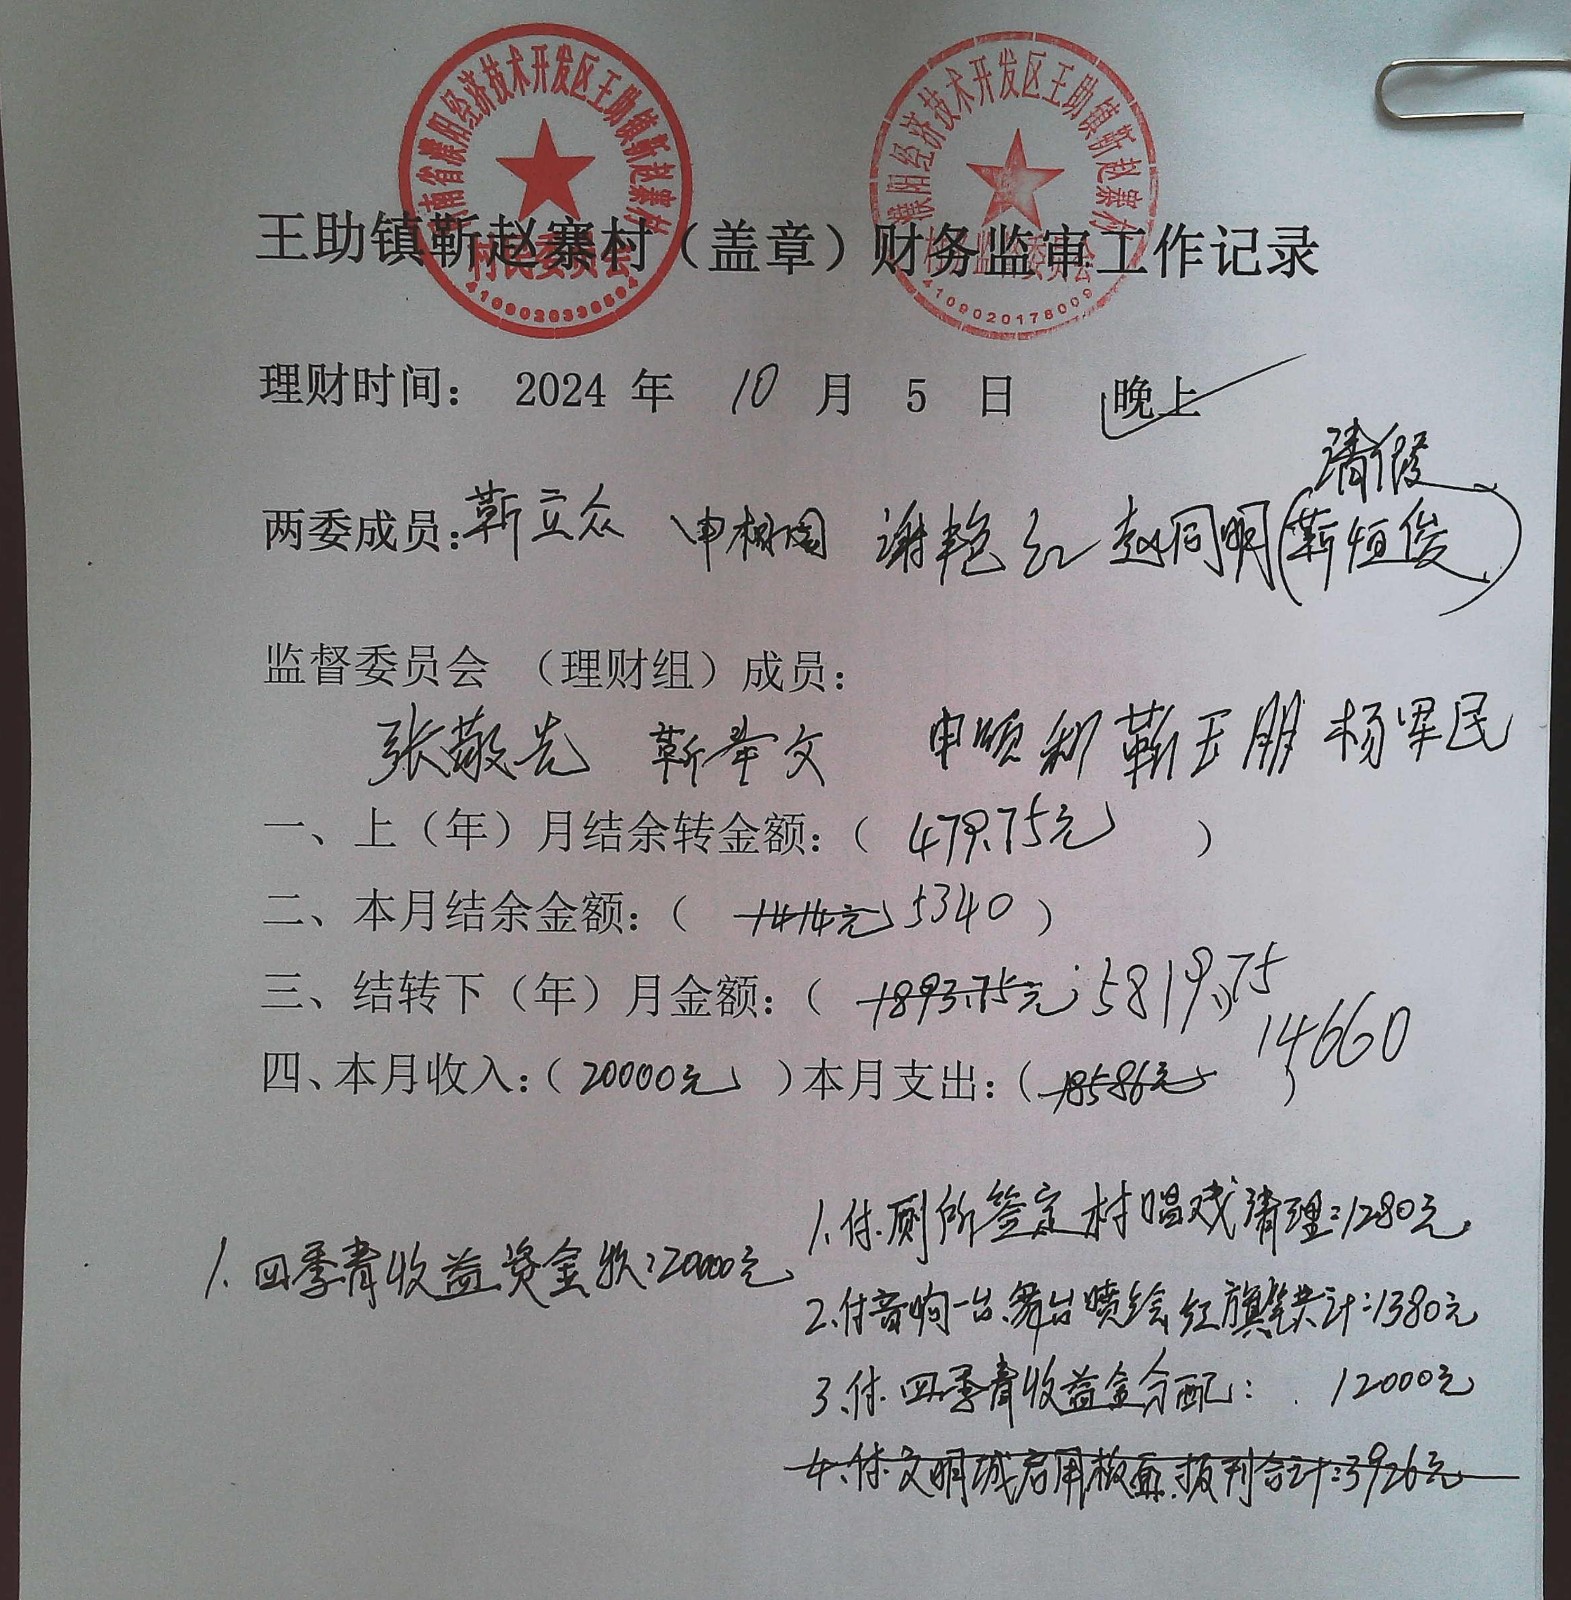 河南省濮阳经济技术开发区王助镇靳赵寨村
村民委员会
濮阳经济技术开发区王助镇靳赵寨村
委员会
4109020178009
王助镇靳赵寨村（盖章）财务监审工作记录
理财时间： 2024 年 10 月 5 日 晚上
请假
两委成员：靳立众 申树国 谢艳红 赵同明（靳恒俊）
监督委员会 （理财组）成员：
张敬先 靳举文 申顺利 靳玉朋 杨军民
一、上（年）月结余转金额：（ 479.75元 ）
二、本月结余金额：（ 1414元 5340 ）
三、结转下（年）月金额：（ 1893.75元 5819.75
四、本月收入：（20000元 ）本月支出：（18586元 ） 14660
1. 四季青收益资金款：20000元
1. 付.厕所签定村唱戏清理：1280元
2. 付音响一台.舞台喷绘红旗等共计：1380元
3. 付.四季青收益金分配： 12000元
4. 付.文明城启用板面.报刊合计：3926元